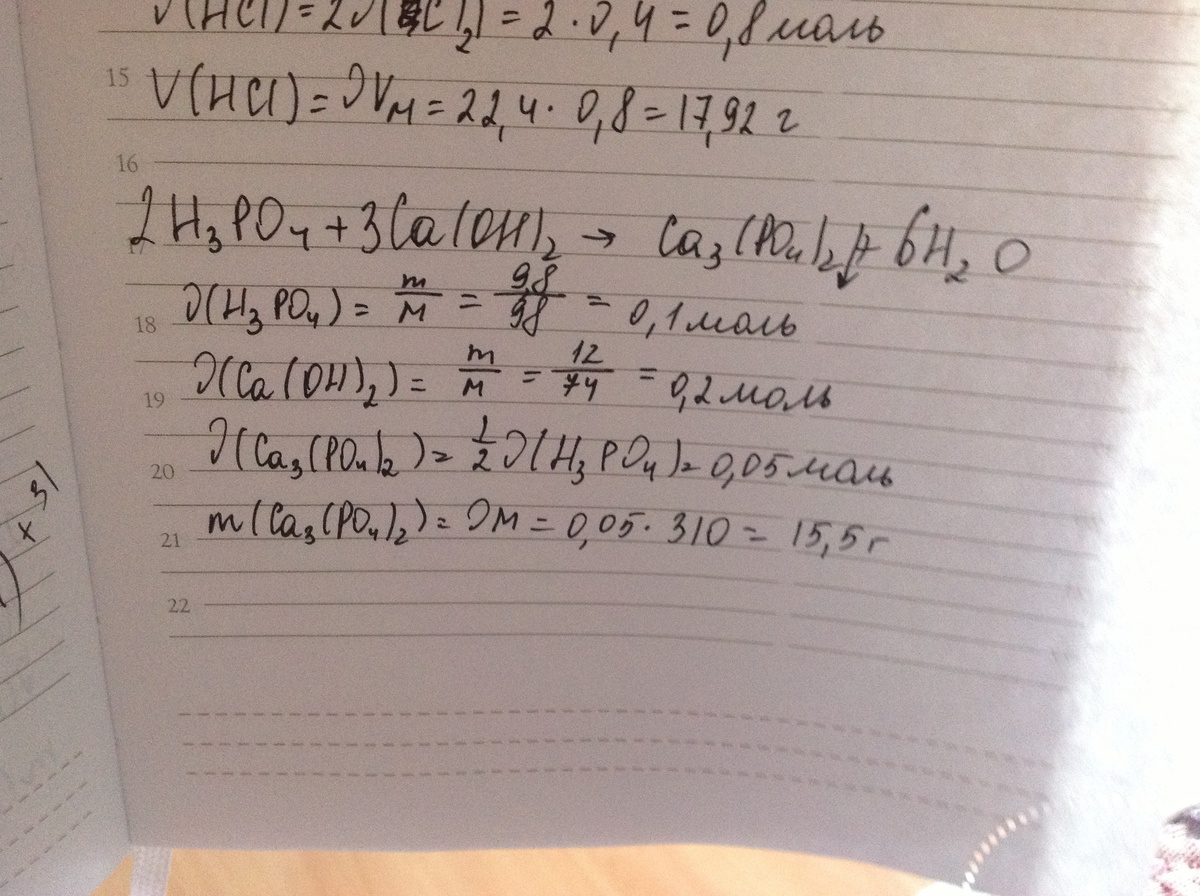 ν(HCl)=2ν( Cl₂)=2·0,4=0,8 моль
15 V(HCl)=νVм=22,4·0,8=17,92 г
16
2H₃PO₄+3Ca(OH)₂→ Ca₃(PO₄)₂↓+6H₂O
17
18 ν(H₃PO₄)= m/м = 9,8/98 = 0,1 моль
19 ν(Ca(OH)₂)= m/м = 12/74 = 0,2 моль
20 ν(Ca₃(PO₄)₂)= 1/2 ν(H₃PO₄)= 0,05 моль
21 m(Ca₃(PO₄)₂)= νм = 0,05·310 = 15,5 г
22
x 3)